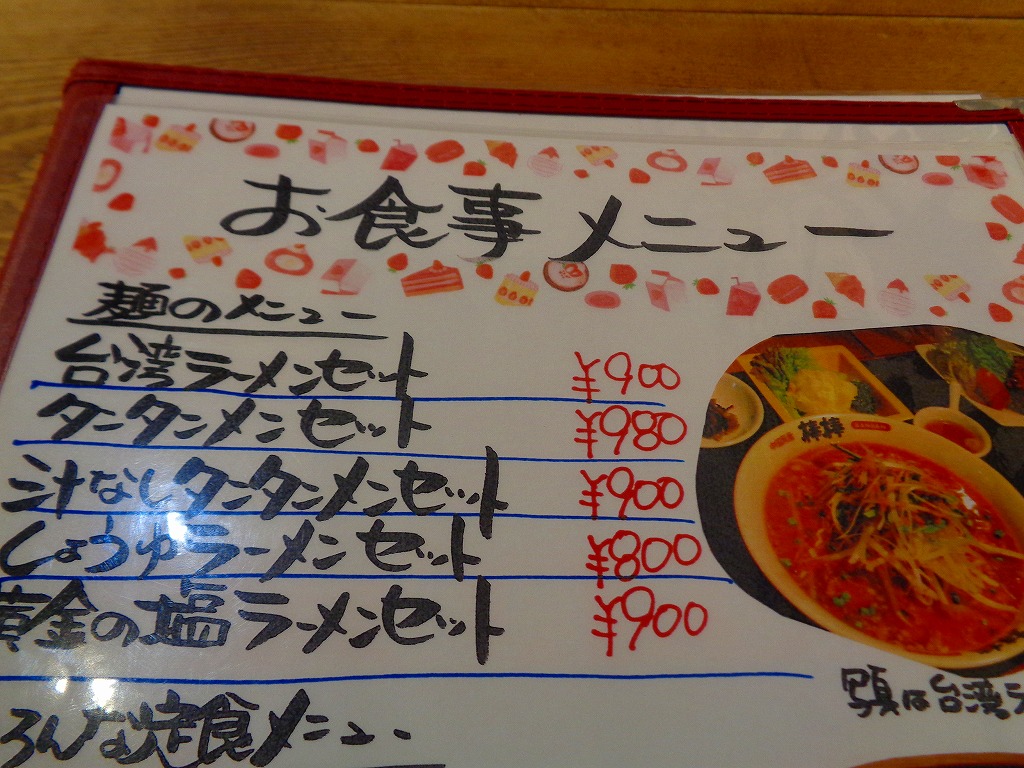 お食事メニュー
麺のメニュー
台湾ラーメンセット ¥900
タータンメンセット ¥980
汁なしタンタンメンセット ¥900
しょうゆラーメンセット ¥800
黄金の塩ラーメンセット ¥900
棒棒
写真は台湾ラ
ろんな定食メニュー